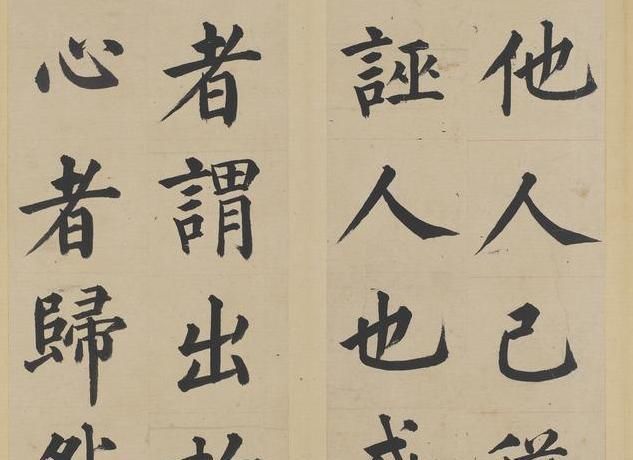 他人己從
誣人也或
者謂出於
心者歸